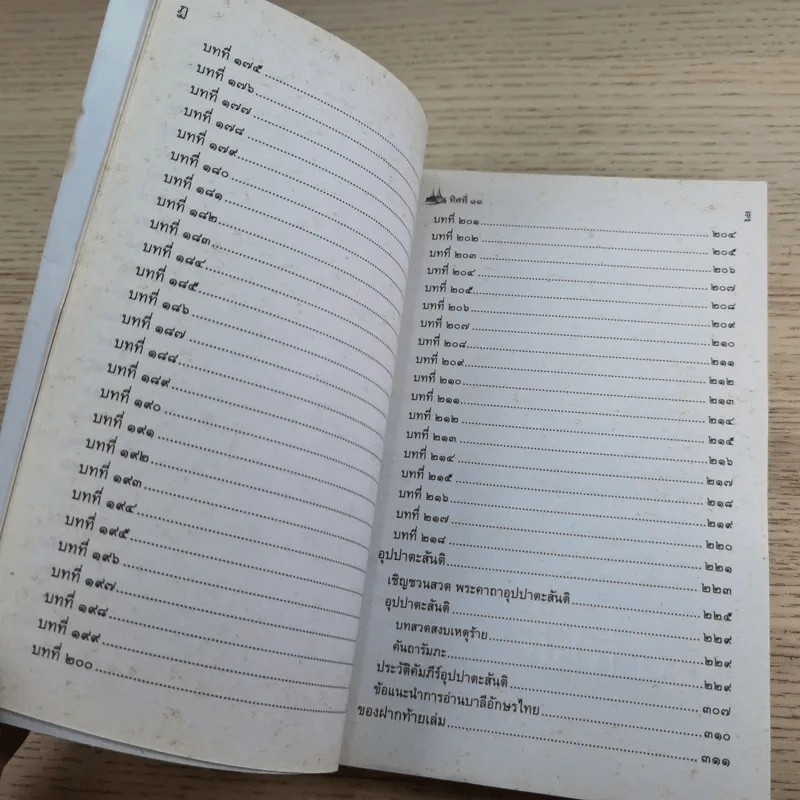 ฏ
บทที่ ๑๗๕
บทที่ ๑๗๖
บทที่ ๑๗๗
บทที่ ๑๗๘
บทที่ ๑๗๙
บทที่ ๑๘๐
บทที่ ๑๘๑
บทที่ ๑๘๒
บทที่ ๑๘๓
บทที่ ๑๘๔
บทที่ ๑๘๕
บทที่ ๑๘๖
บทที่ ๑๘๗
บทที่ ๑๘๘
บทที่ ๑๘๙
บทที่ ๑๙๐
บทที่ ๑๙๑
บทที่ ๑๙๒
บทที่ ๑๙๓
บทที่ ๑๙๔
บทที่ ๑๙๕
บทที่ ๑๙๖
บทที่ ๑๙๗
บทที่ ๑๙๘
บทที่ ๑๙๙
บทที่ ๒๐๐
ทิศที่ ๑๑
บทที่ ๒๐๑ ๒๐๔
บทที่ ๒๐๒ ๒๐๕
บทที่ ๒๐๓ ๒๐๖
บทที่ ๒๐๔ ๒๐๗
บทที่ ๒๐๕ ๒๐๘
บทที่ ๒๐๖ ๒๐๙
บทที่ ๒๐๗ ๒๑๐
บทที่ ๒๐๘ ๒๑๑
บทที่ ๒๐๙ ๒๑๒
บทที่ ๒๑๐ ๒๑๓
บทที่ ๒๑๑ ๒๑๔
บทที่ ๒๑๒ ๒๑๕
บทที่ ๒๑๓ ๒๑๖
บทที่ ๒๑๔ ๒๑๗
บทที่ ๒๑๕ ๒๑๘
บทที่ ๒๑๖ ๒๑๙
บทที่ ๒๑๗ ๒๒๐
บทที่ ๒๑๘ ๒๒๑
อุปปาตะสันติ ๒๒๓
เชิญชวนสวด พระคาถาอุปปาตะสันติ ๒๒๕
อุปปาตะสันติ ๒๒๙
บทสวดสงบเหตุร้าย ๒๒๙
คันถารัมภะ ๒๒๙
ประวัติคัมภีร์อุปปาตะสันติ ๓๐๗
ข้อแนะนำการอ่านบาลีอักษรไทย ๓๑๐
ของฝากท้ายเล่ม ๓๑๑